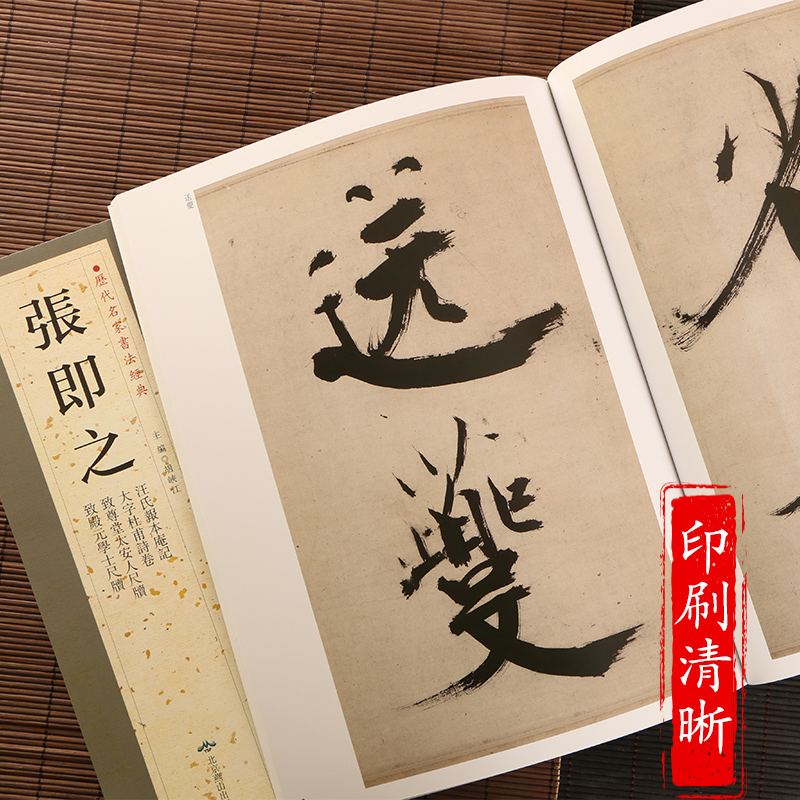 歷代名家書法經典
張即之
主編
汪氏報本庵記
大字杜甫詩卷
致尊堂太安人尺牘
致殿元學士尺牘
北京燕山出
送夔
送夔
印刷清晰